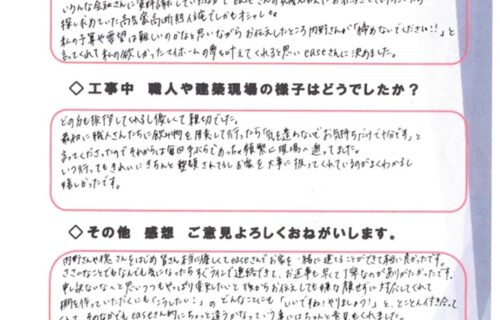 探し求めていた高気密高断熱住宅でしかもオシャレ。
私の予算や希望は難しいのかなと思いながらお伝えしたところ内野さんが「諦めないでください!!」と
言ってくれて私の欲しかったマイホームの夢を叶えてくれると思いeaseさんに決めました。
◇工事中 職人や建築現場の様子はどうでしたか？
どの方も挨拶してくれるし優しくて親切でした。
最初に職人さんたちに飲み物を用意して行ったら「気を遣わないでお気持ちだけで十分です」と
言ってくださったのでそれからは毎回手ぶらで めっちゃ頻繁に現場へ通ってました。
いつ行ってもきれいにきちんと整理されてるしお家を大事に扱ってくれているのがよくわかるし
嬉しかったです。
◇その他 感想 ご意見よろしくおねがいします。
内野さんや さんをはじめ皆さん本当に優しくてeaseさんでお家を一緒に建てることができて本当に良かったです。
ささいなことでもなんでも気になったらすぐラインで連絡できて、お返事も早くて丁寧なのがありがたかったです。
申し訳ないなぁと思いつつもやっぱり変更したいと後からお伝えしても嫌な顔せずに対応してくれて
棚を作っていただくにも「こうしたい!」の どんなことにも「いいですね!やりましょう!」と、とことん付き合って
くれて、そのなかでもeaseさん的にちょっと違うかなっていう事にはちゃんと意見もくれました。